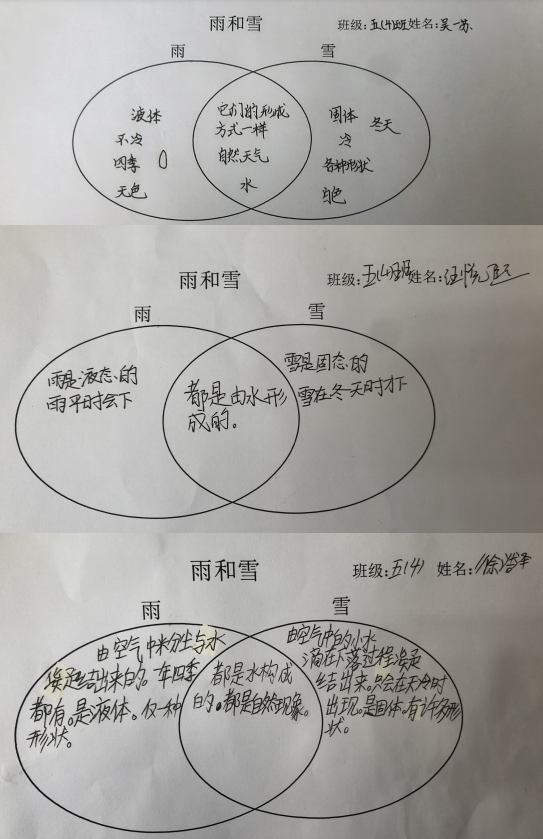 雨和雪
班级:五(4)班姓名:吴一苏
雨
雪
液体
不冷
四季
无色
它们的形成
方式一样
自然天气
水
固体
冬天
冷
各种形状
白色
雨和雪
班级:五(4)班姓名:汪悦
雨
雪
雨是液态的
雨平时会下
都是由水形
成的。
雪是固态的
雪在冬天时才下
雨和雪
班级:五(4) 姓名:徐浩泽
雨
雪
由空气中米分土与水
凝结出来的。年四季
都有。是液体。仅一种
形状。
都是水构成
的。都是自然现象。
由空气中的小水
滴在下落过程凝
结出来。只会在天冷时
出现。是固体。有许多形
状。